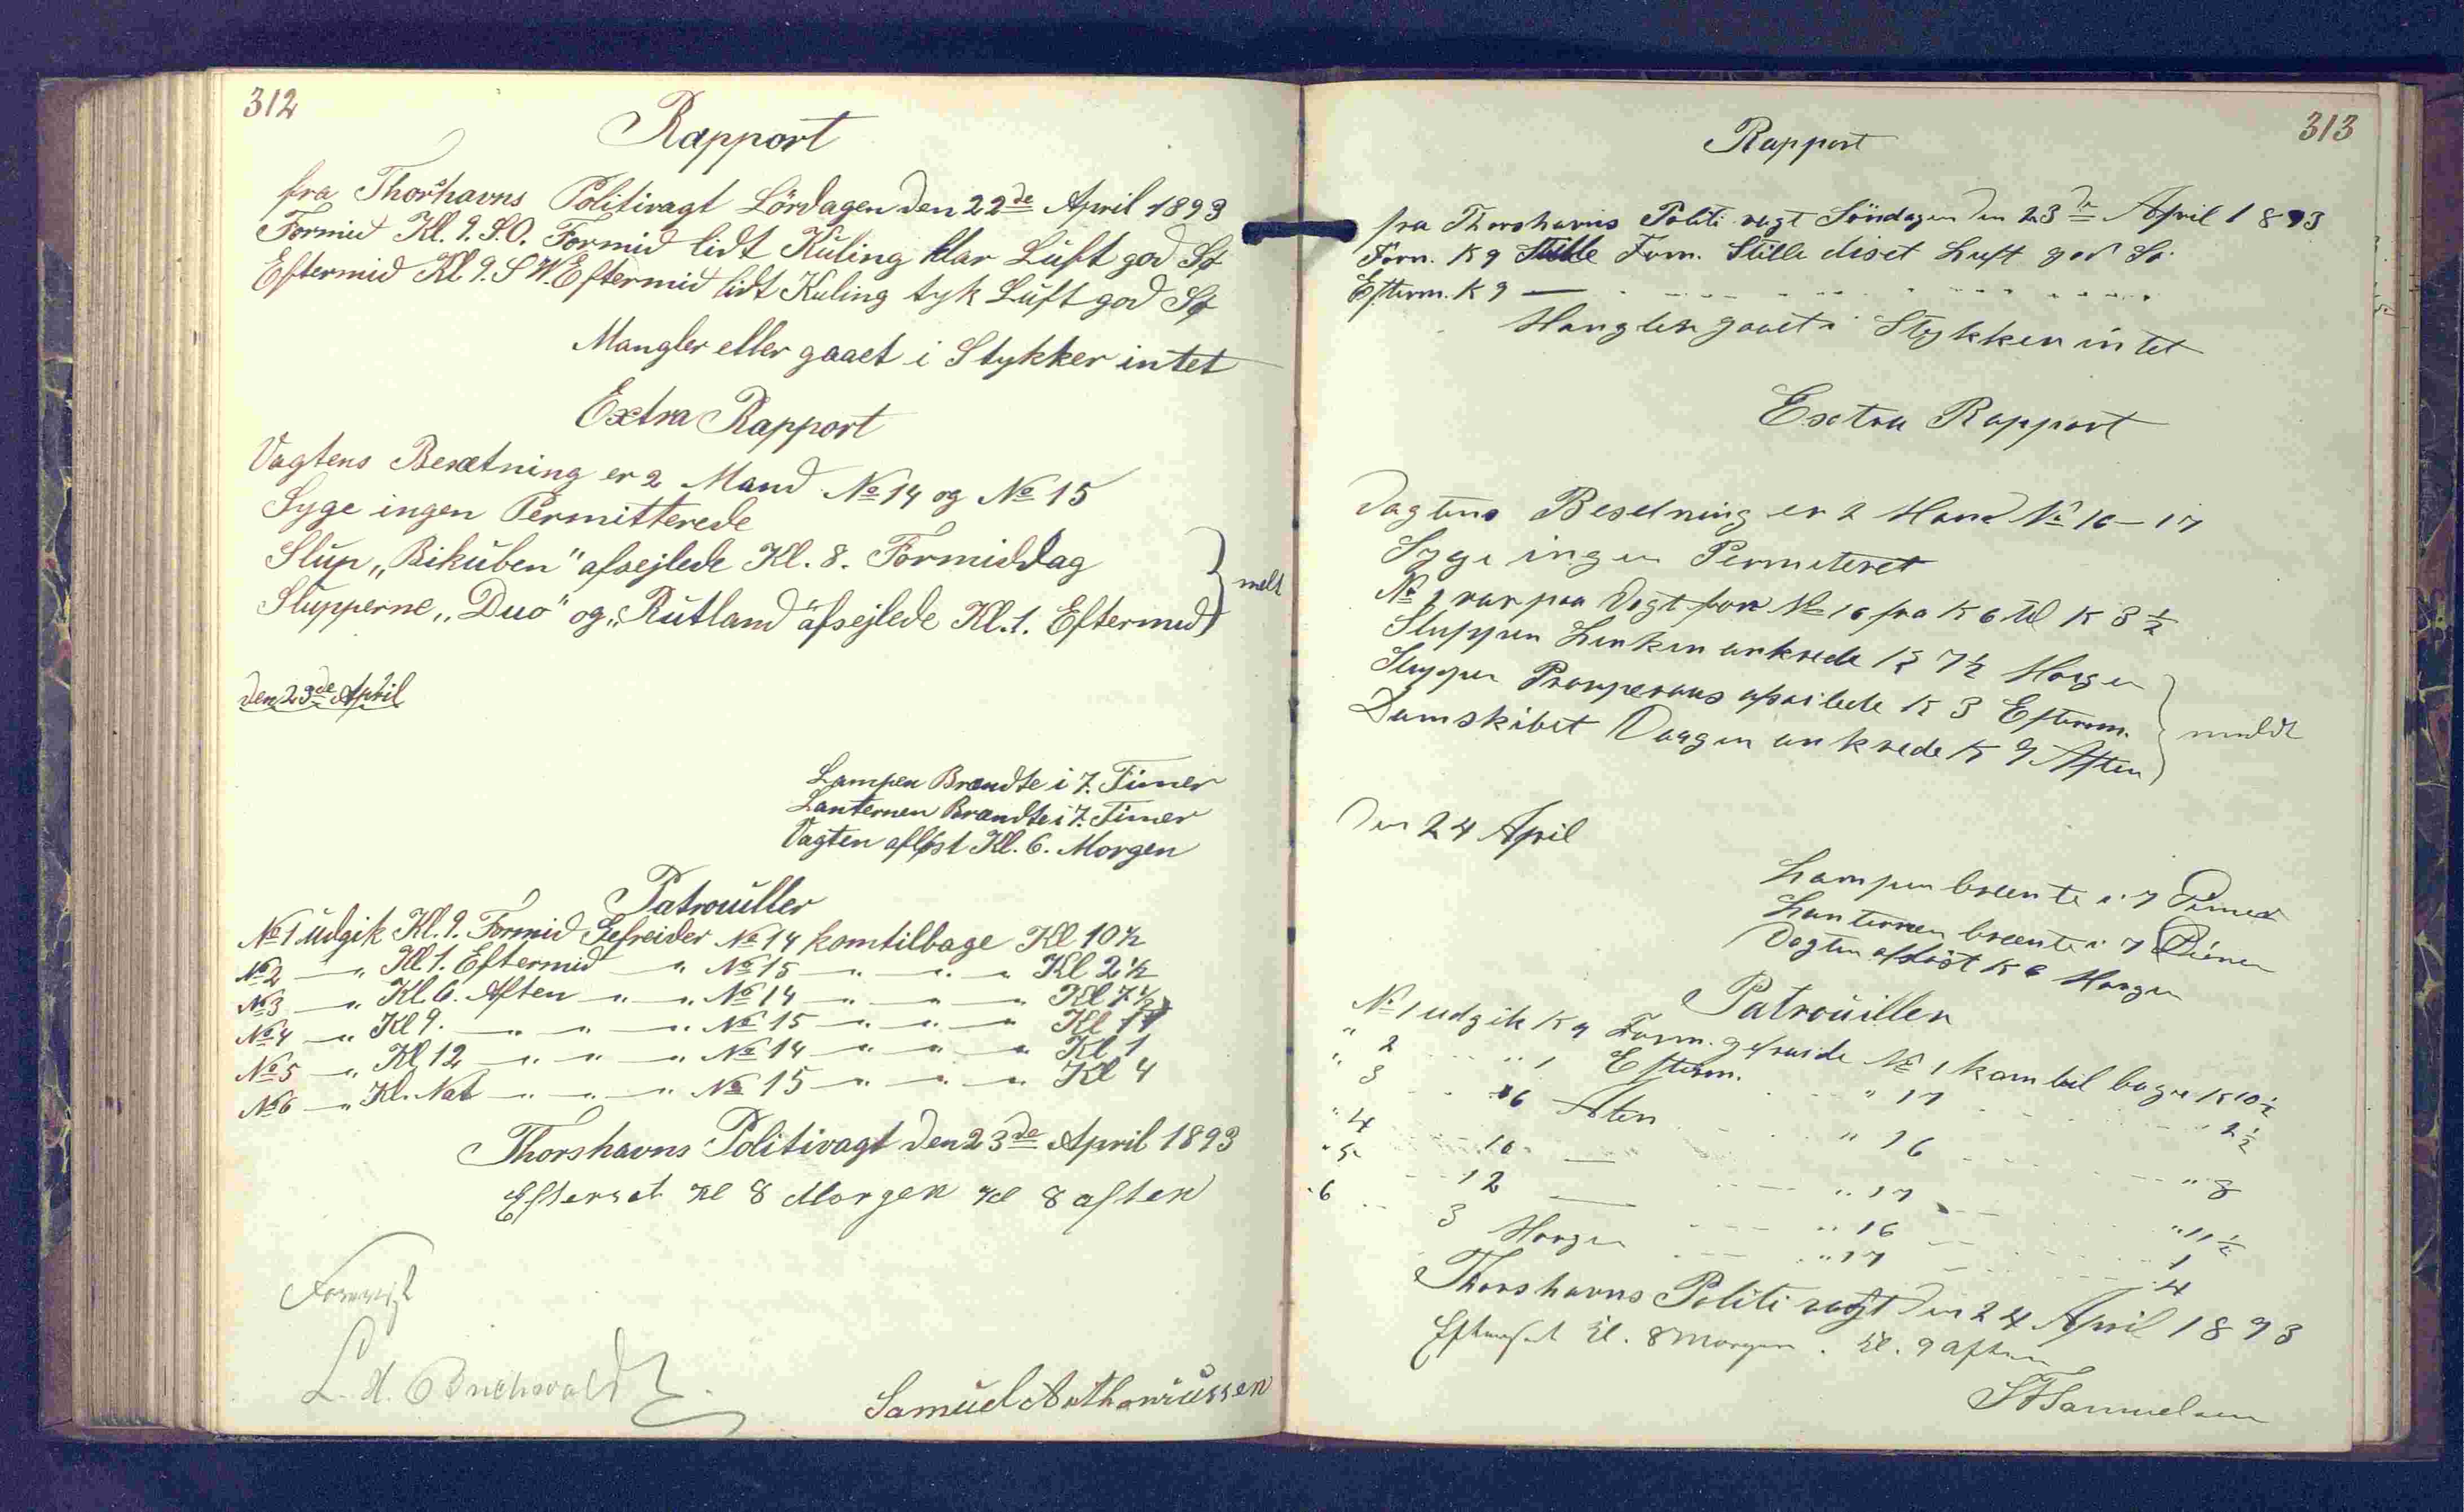 312
Rapport
fra Thorshavns Politivagt Lördagen den 22de April 1893
Formid Kl. 9. S.O. Formid lidt Kuling klar Luft god Sø
Eftermid Kl 9. S W. Eftermid lidt Kuling tyk Luft god Sø
Mangler eller gaaet i Stykker intet
Extra Rapport
Vagtens Besætning er 2 Mand No 14 og No 15
Syge ingen Permitterede
Slup „Bikuben" afsejlede Kl. 8. Formiddag
Slupperne „Duo" og „Rutland" afsejlede Kl. 1. Eftermid
melt
den 23de April
Lampen Brændte i 7. Timer
Lanternen Brændte i 7. Timer
Vagten afløst Kl. 6. Morgen
Patrouiller
No 1 Udgik Kl. 9. Formid Gefreider No 14 kom tilbage Kl 10½
No 2 — „ Kl 1. Eftermid — „ No 15 — „ — „ — „ Kl 2½
No 3 — „ Kl. 6. Aften — „ — „ No 14 — „ — „ — „ Kl 7½
No 4 — „ Kl 9. — „ — „ — „ No 15 — „ — „ — „ Kl 11
No 5 — „ Kl 12 — „ — „ — „ No 14 — „ — „ — „ Kl 1
No 6 — „ Kl. Nat — „ — „ — „ No 15 — „ — „ — „ Kl 4
Thorshavns Politivagt den 23de April 1893
Efterset Kl 8 Morgen Kl 8 aften
Forevist
L. H. Buchwaldt.
Samuel Anthoniussen
313
Rapport
fra Thorshavns Politi vagt Söndagen den 23de April 1893
Form. K 9 Stille Form. Stille diset Luft god Sö
Efterm. K 9 —
Mangler gaaet i Stykker intet
Extra Rapport
Vagtens Besetning er 2 Mand No 16 – 17
Syge ingen Permiteret
No 1 var paa Vagt for No 16 fra K 6 til K 8½
Sluppen ankrede K 7½ Morgen
Sluppen Prosperous afseilede K 3 Efterm.
Damskibet Vaagen ankrede K 9 Aften
meldt
Den 24 April
Lampen brente i 7 Timer
Lanternen brente i 7 Timer
Vagten aflöst K 6 Morgen
Patrouiller
No 1 udgik K 9 Form. gefreide No 1 kom til bage K 10½
" 2 " 1 Efterm. " 17 " 2½
" 3 6 Aften " 16 " 8
" 4 10 — " 17 " 11½
" 5 12 — " 16 1
" 6 3 Morgen " 17 4
Thorshavns Politi vagt den 24 April 1893
Efterset Kl. 8 Morgen. Kl. 9 aften
Samuelsen